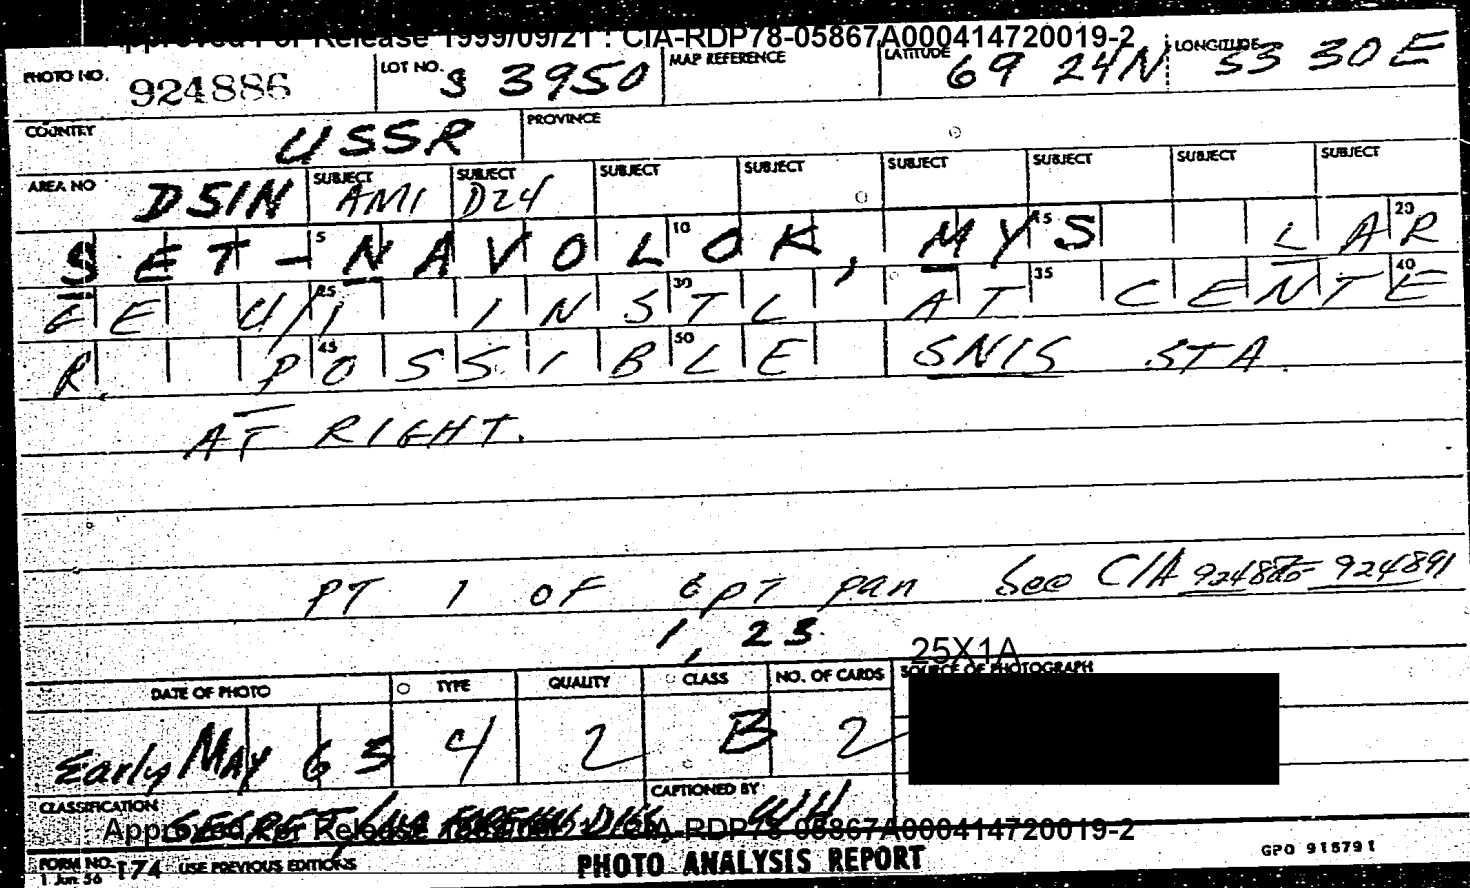 Approved For Release 1999/09/21 : CIA-RDP78-05867A000414720019-2
PHOTO NO. 924886 LOT NO. S 3950 MAP REFERENCE LATITUDE 69 24N LONGITUDE 33 30E
COUNTRY USSR PROVINCE
AREA NO DSIN SUBJECT AMI SUBJECT D24 SUBJECT SUBJECT SUBJECT SUBJECT SUBJECT SUBJECT
5 10 15 20
SET-NAVOLOK, MYS LAR
25 30 35 40
GE U/I INSTL, AT CENTE
45 50
R. POSSIBLE SNIS STA.
AT RIGHT.
PT 1 OF 6 PT pan See CIA 924886-924891
1, 23
25X1A
DATE OF PHOTO TYPE QUALITY CLASS NO. OF CARDS SOURCE OF PHOTOGRAPH
Early MAY 63 4 2 B 2
CLASSIFICATION SECRET CAPTIONED BY
Approved For Release CIA-RDP78-05867A000414720019-2
FORM NO. 1 Jun 56 174 USE PREVIOUS EDITIONS PHOTO ANALYSIS REPORT GPO 915791